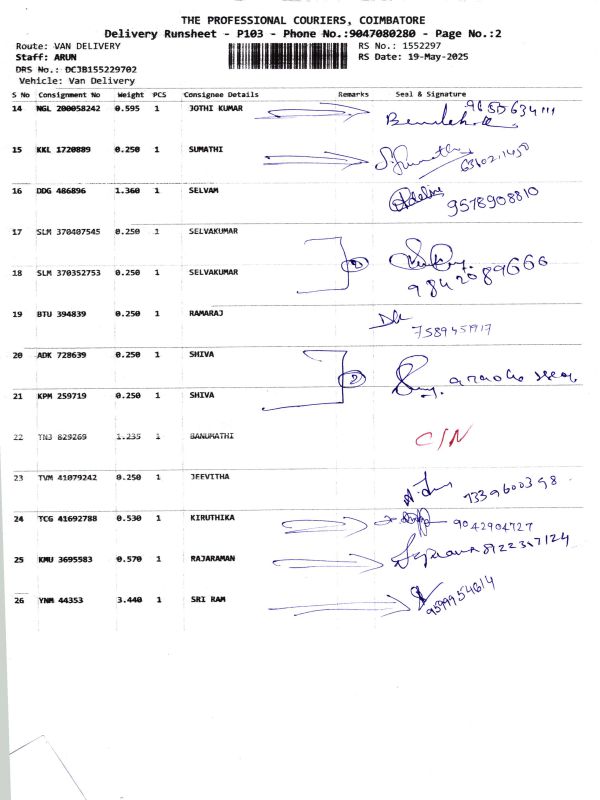 THE PROFESSIONAL COURIERS, COIMBATORE
Delivery Runsheet - P103 - Phone No.:9047080280 - Page No.:2
Route: VAN DELIVERY RS No.: 1552297
Staff: ARUN RS Date: 19-May-2025
DRS No.: DCJB155229702
Vehicle: Van Delivery
S No Consignment No Weight PCS Consignee Details Remarks Seal & Signature
14 NGL 200058242 0.595 1 JOTHI KUMAR
15 KKL 1720889 0.250 1 SUMATHI
16 DDG 486896 1.360 1 SELVAM 9578908810
17 SLM 370407545 0.250 1 SELVAKUMAR
18 SLM 370352753 0.250 1 SELVAKUMAR 2 9842089666
19 BTU 394839 0.250 1 RAMARAJ
7589451917
20 ADK 728639 0.250 1 SHIVA
21 KPM 259719 0.250 1 SHIVA 2
22 TNJ 829269 1.235 1 BANUMATHI C/N
23 TVM 41079242 0.250 1 JEEVITHA 7339600398
24 TCG 41692788 0.530 1 KIRUTHIKA 9042904727
25 KMU 3695583 0.570 1 RAJARAMAN
26 YNM 44353 3.440 1 SRI RAM